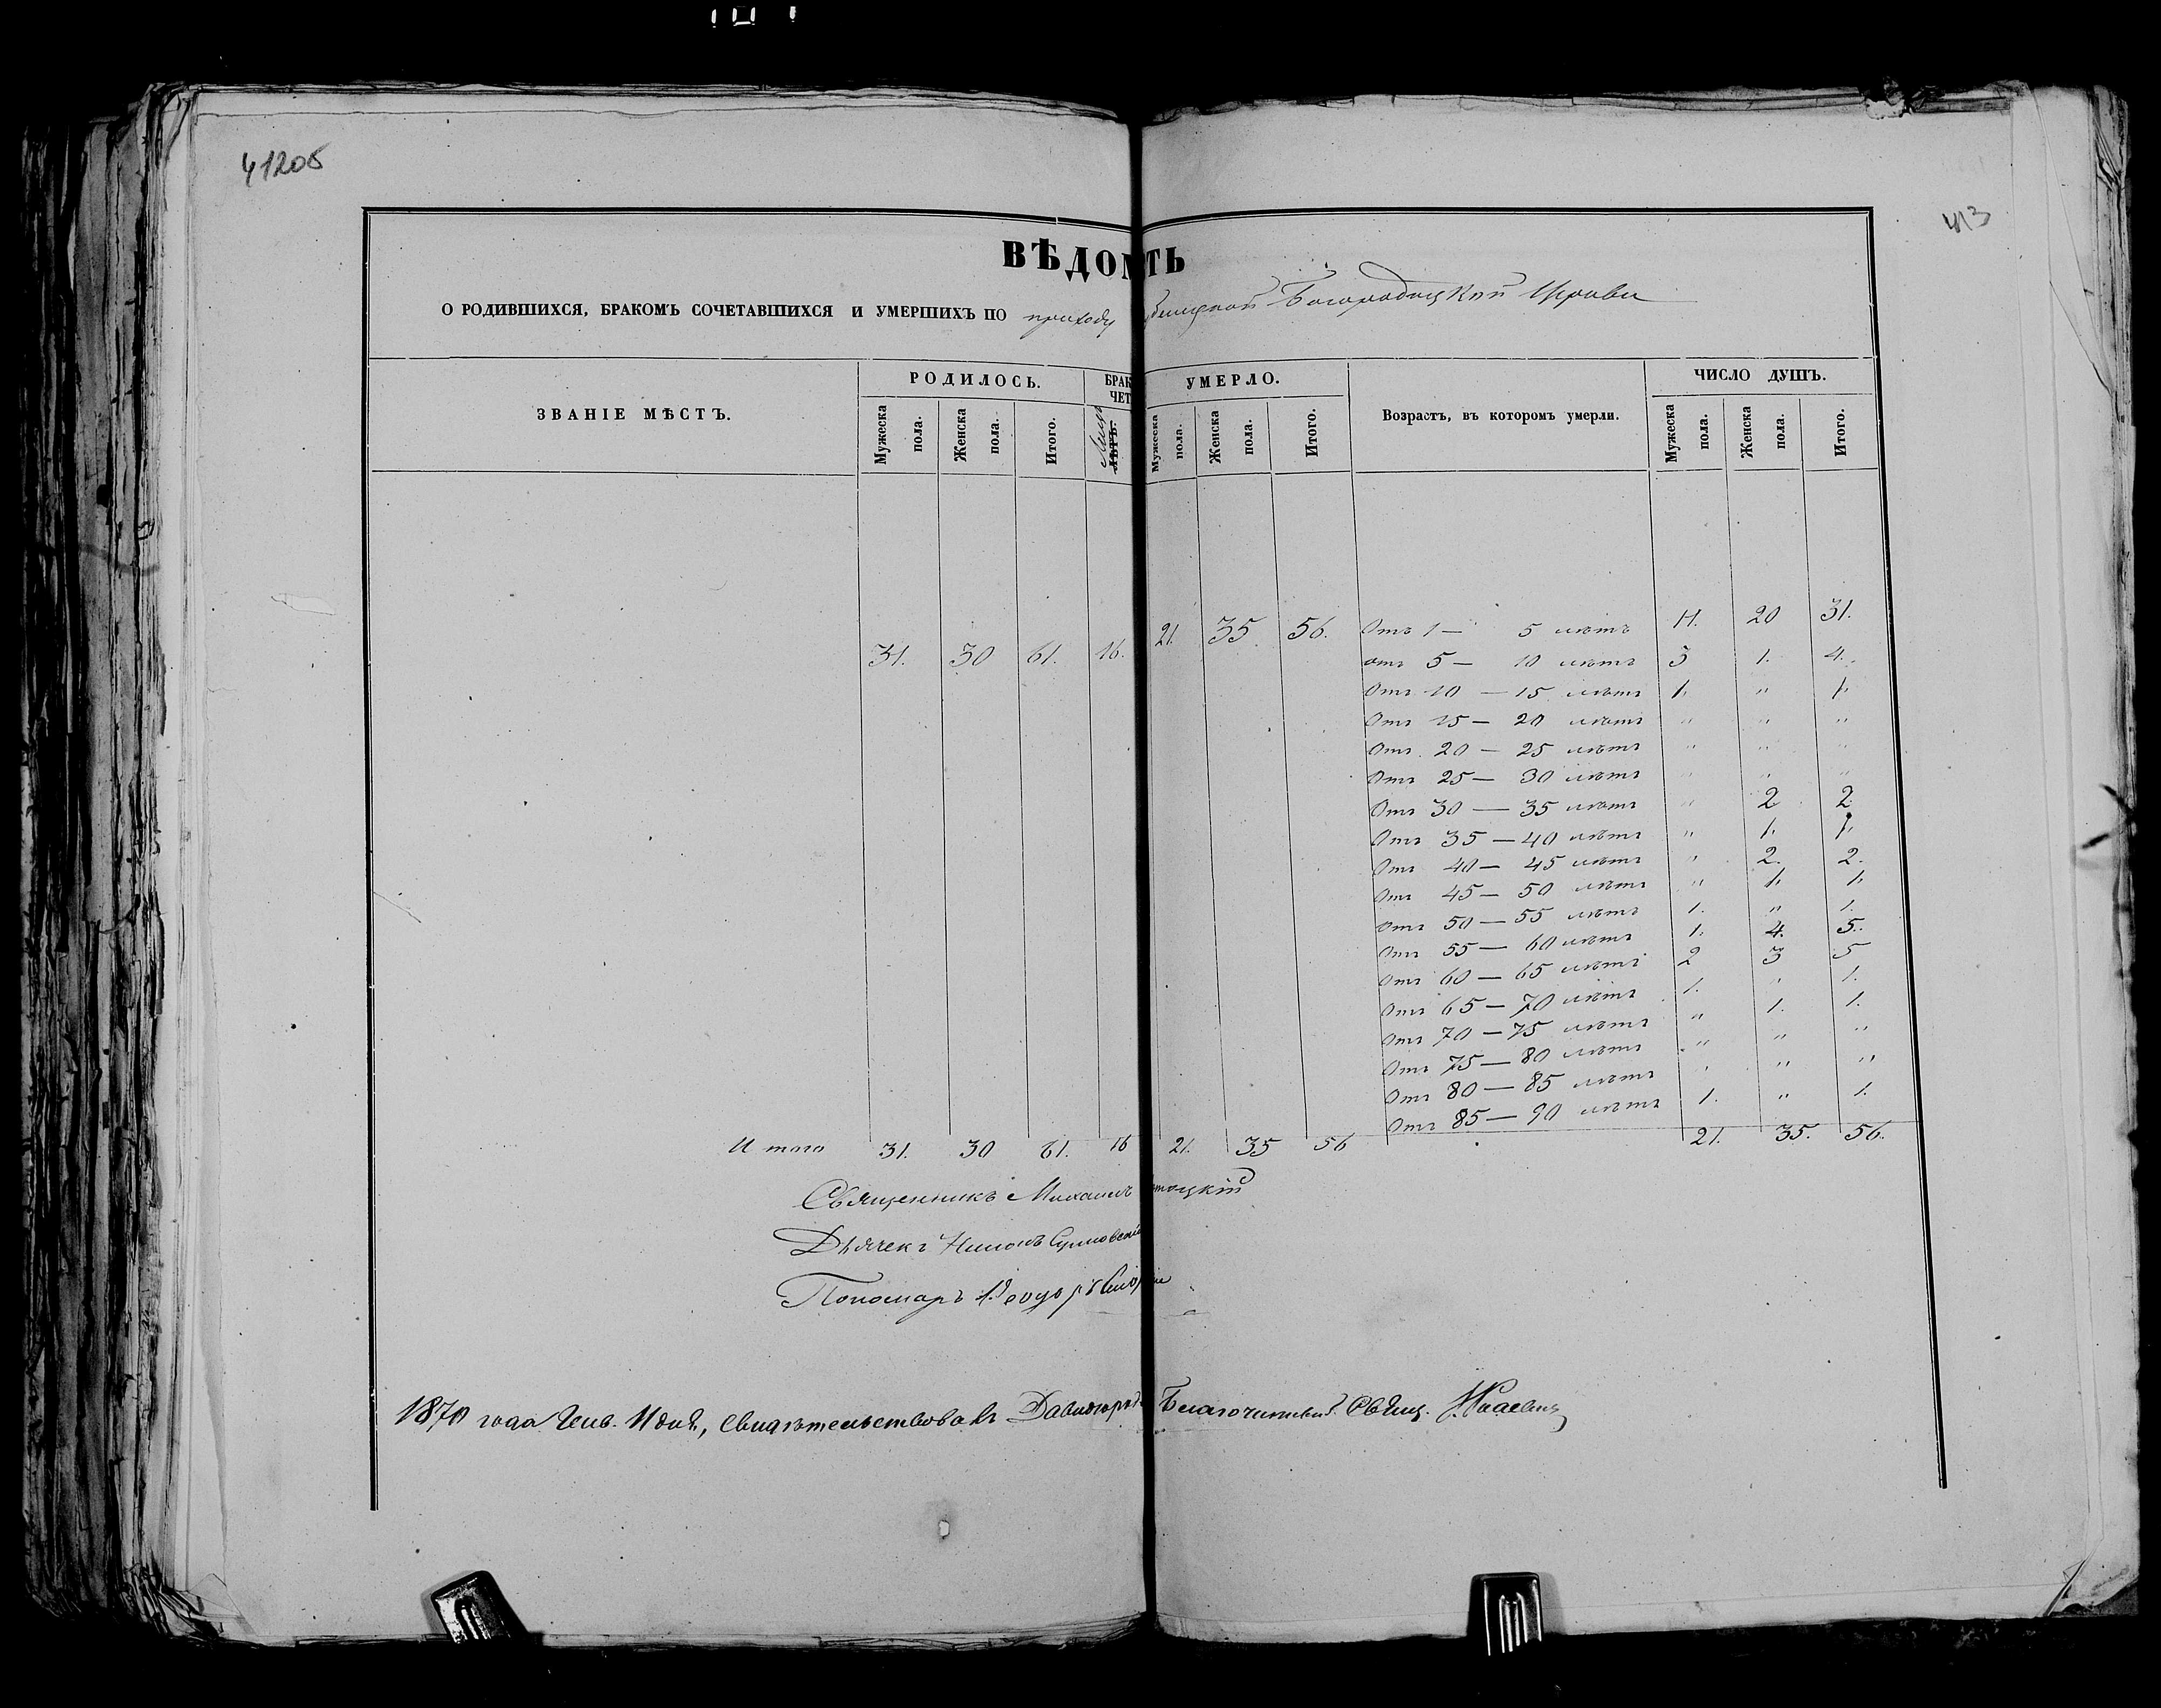 412об
413
ВѢДОМ ТЬ
О РОДИВШИХСЯ, БРАКОМЪ СОЧЕТАВШИХСЯ И УМЕРШИХЪ ПО приходу Богородицкой Церкви
ЗВАНІЕ МѢСТЪ. РОДИЛОСЬ. БРАК ЧЕТ УМЕРЛО. Возрастъ, въ которомъ умерли. ЧИСЛО ДУШЪ.
Мужеска пола. Женска пола. Итого. лѣтъ. Мужеска пола. Женска пола. Итого. Мужеска пола. Женска пола Итого.
31. 30 61. 16. 21. 35 56. Отъ 1 — 5 лѣтъ 11. 20 31.
отъ 5 — 10 лѣтъ 3 1. 4.
Отъ 10 — 15 лѣтъ 1. " 1.
Отъ 15 — 20 лѣтъ " " "
Отъ 20 — 25 лѣтъ " " "
Отъ 25 — 30 лѣтъ " " "
Отъ 30 — 35 лѣтъ " 2 2
Отъ 35 — 40 лѣтъ " 1. 1.
Отъ 40 — 45 лѣтъ " 2. 2.
Отъ 45 — 50 лѣтъ " 1. 1.
Отъ 50 — 55 лѣтъ 1. " 1.
Отъ 55 — 60 лѣтъ 1. 4. 5.
Отъ 60 — 65 лѣтъ 2 3 5
Отъ 65 — 70 лѣтъ 1. " 1.
Отъ 70 — 75 лѣтъ " 1. 1.
Отъ 75 — 80 лѣтъ " " "
Отъ 80 — 85 лѣтъ " " "
Отъ 85 — 90 лѣтъ 1. " 1.
Итого 31. 30 61. 16 21. 35 56 21. 35. 56.
Священникъ Михаилъ
Дьячекъ
Пономарь Ѳеодоръ
1870 года Генв. 11 дня, свидѣтельствовалъ Благочинный Свящ.